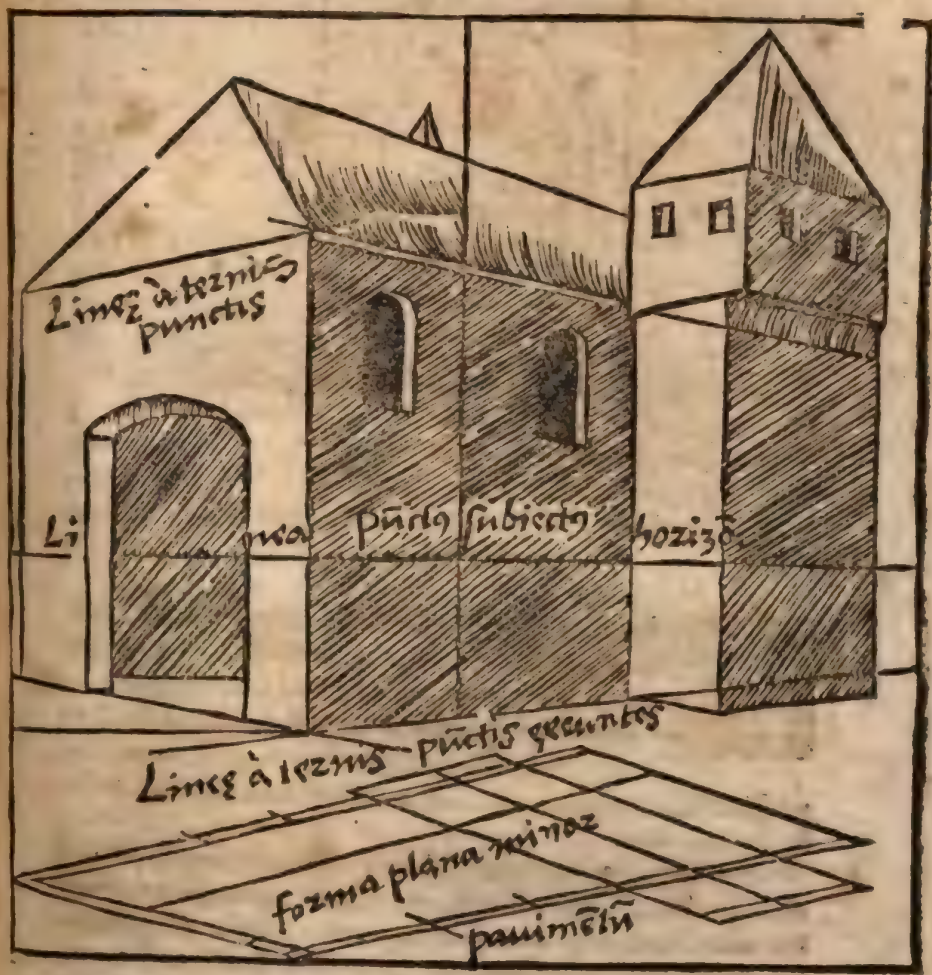 Lineę à ternis
punctis
Linea pūctꝰ subiectꝰ horizō
Lineę à ternis pūctis exeuntes
forma plana minor
pauimētū